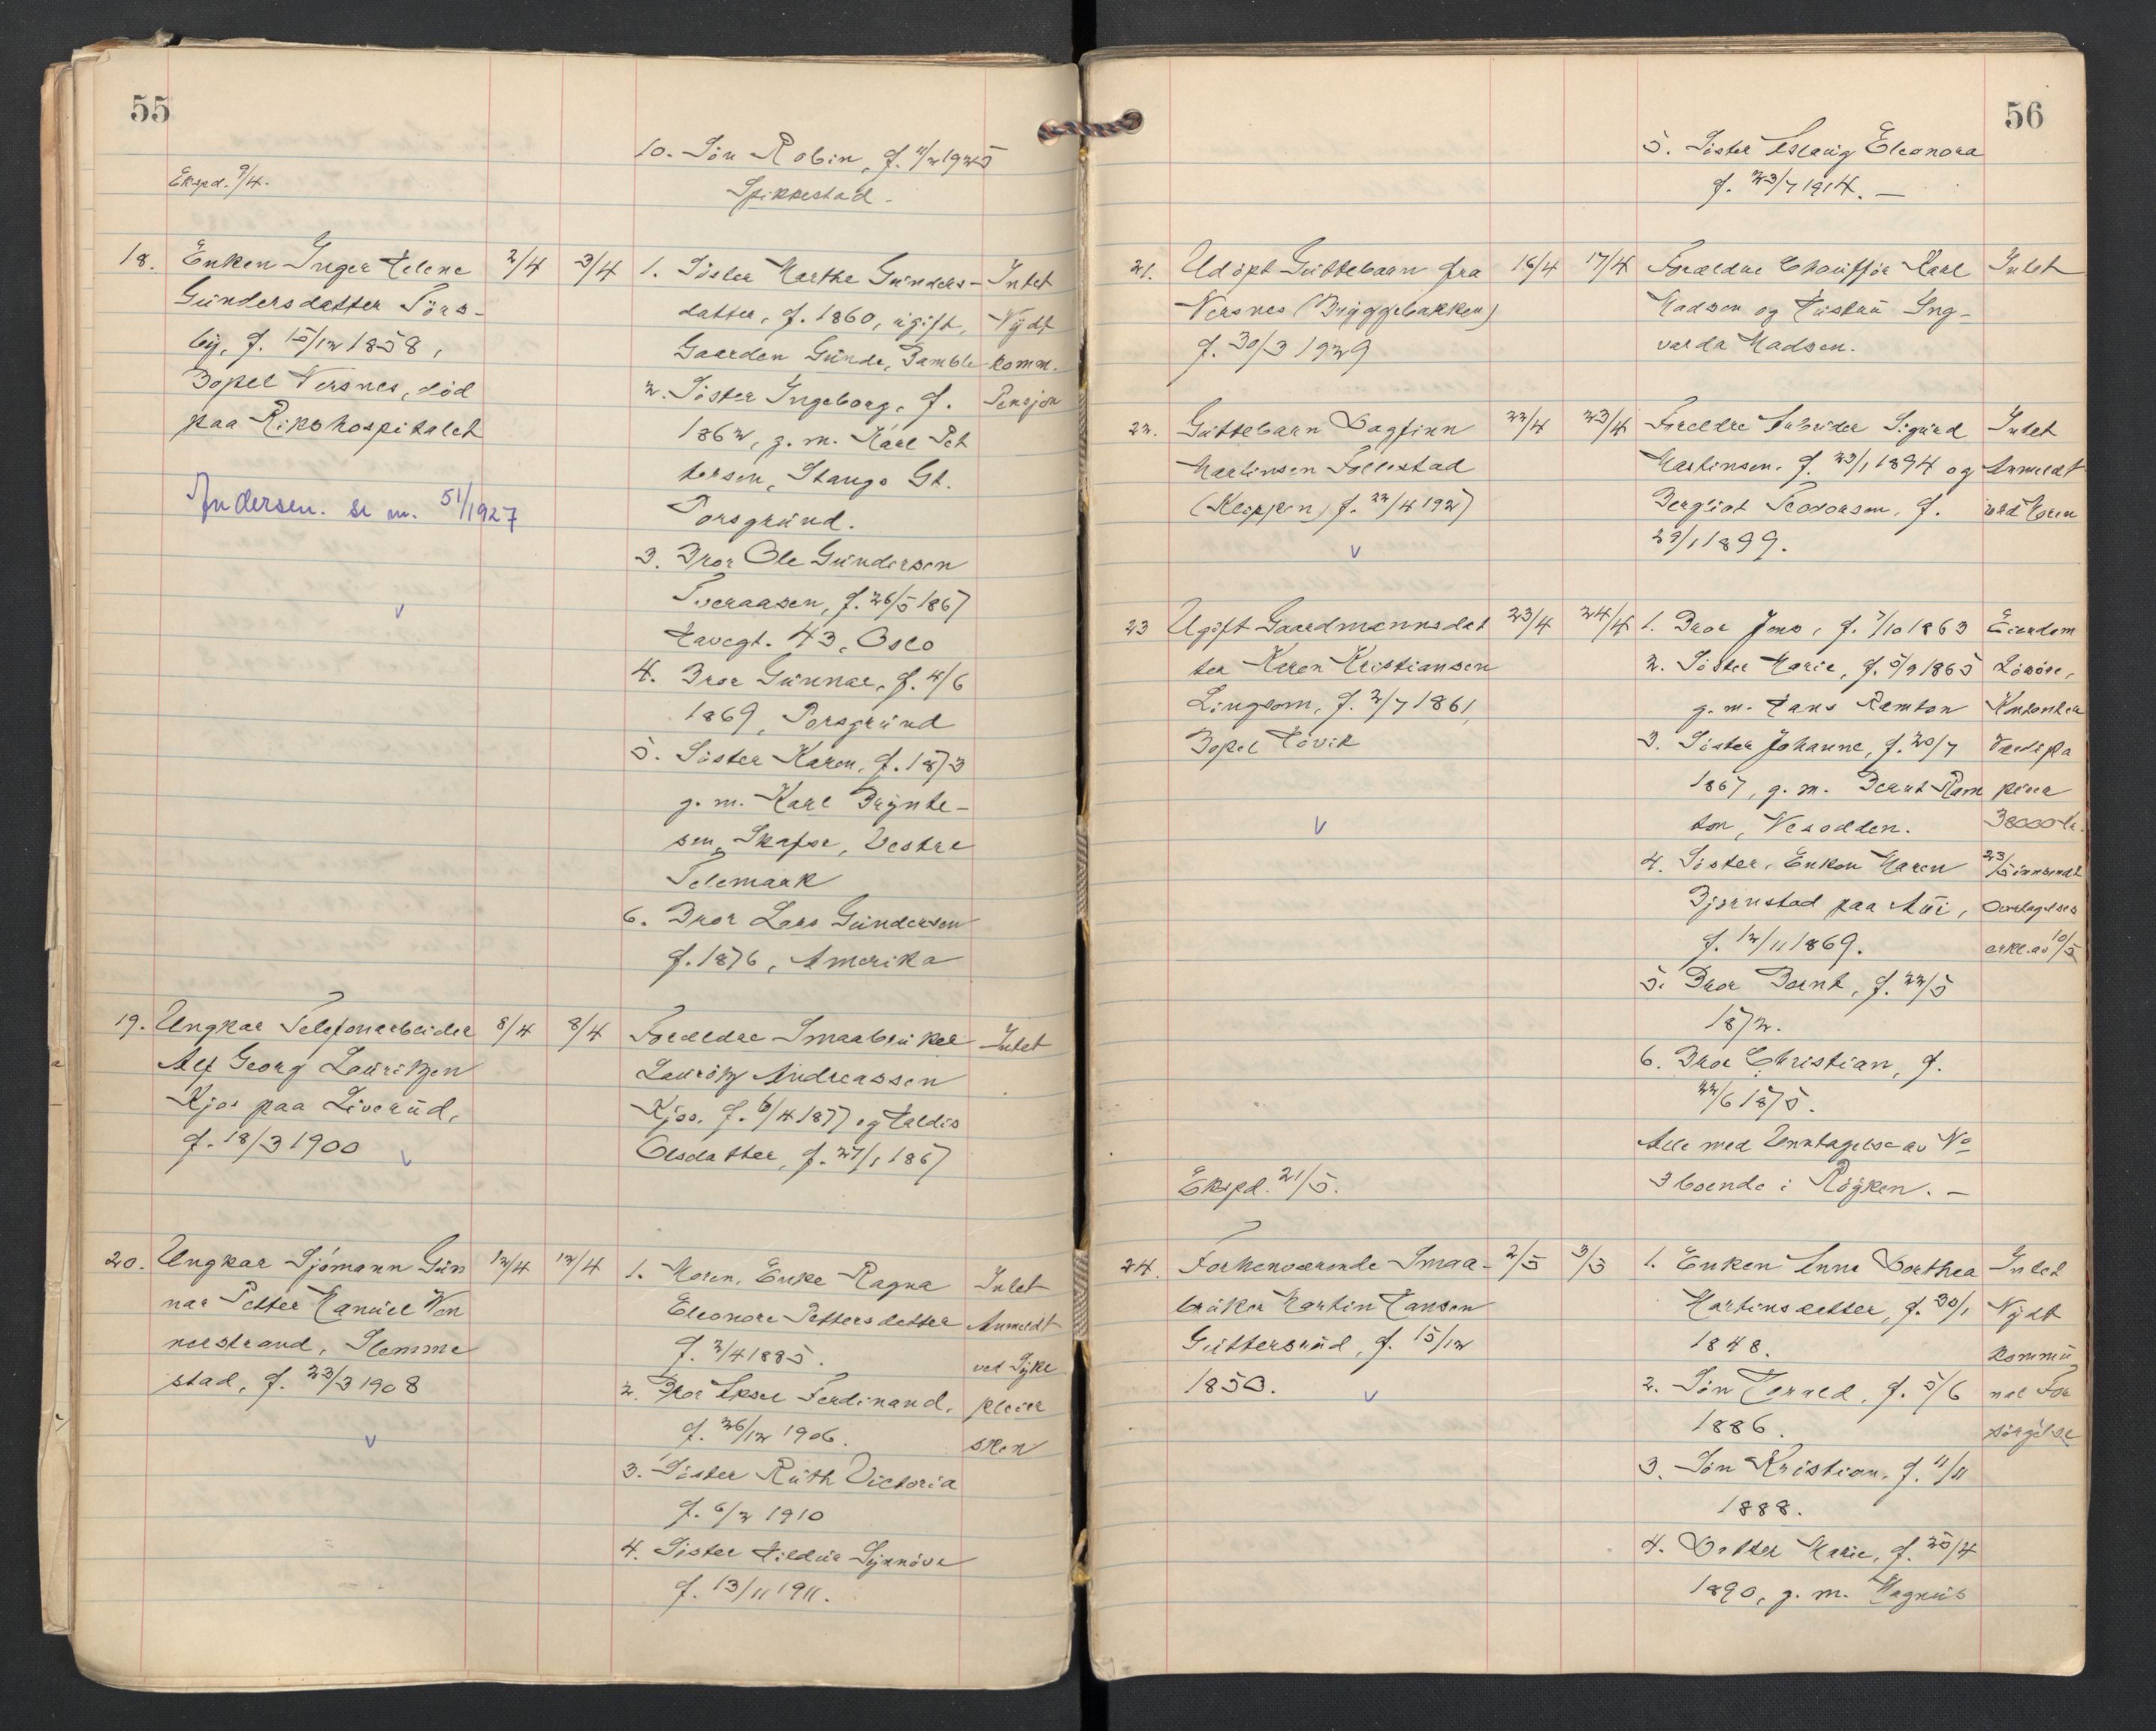 55
10. Sön Robin, f. 11/2 1925
Ekspd. 9/4.
Spikkestad.
18. Enken Inger Helene 2/4 3/4 1. Söster Marthe Gunders- Intet
Gundersdatter Törs- datter, f. 1860, ugift, Nydt
by, f. 15/12 1858, Gaarden Gunde, Bamble komm.
Bopel Nersnes, död 2. Söster Ingeborg, f. Pensjon
paa Rikshospitalet 1862, g. m. Karl Pet
tersen, Stangs Gt.
Andersen. se nr. 51/1927
Porsgrund.
3. Bror Ole Gundersen
Tveraasen, f. 26/5 1867
Havegt. 43, Oslo
4. Bror Gunnar, f. 4/6
1869, Porsgrund
5. Söster Karen, f. 1873
g. m. Karl Brynte-
sen, Skafse, Vestre
Telemark
6. Bror Lars Gundersen
f. 1876, Amerika
19. Ungkar Telefonarbeider 8/4 8/4 Foreldre Smaabruker Intet
Alf Georg Lauritzen Lauritz Andreassen
Kjos paa Liverud, Kjos, f. 6/4 1877 og Haldis
f. 18/3 1900 Olsdatter, f. 27/1 1867
20. Ungkar Sjömann Gun 12/4 12/4 1. Moren, Enke Ragna Intet
nar Petter Manuel Ven Eleonore Pettersdatter Anmeldt
nerstrand, Slemme f. 2/4 1885. ved Syke
stad, f. 23/3 1908 2. Bror Aksel Ferdinand, pleier
f. 26/12 1906. sken
3. Söster Ruth Victoria
f. 6/2 1910
4. Söster Hildur Synnöve
f. 13/11 1911.
56
5. Söster Aslaug Eleonora
f. 23/7 1914. —
21. Udöpt Guttebarn fra 16/4 17/4 Foreldre Chaufför Karl Intet
Nersnes (Bryggebakken) Madsen og Hustru Ing-
f. 30/3 1929 varda Madsen.
22. Guttebarn Dagfinn 22/4 23/4 Foreldre Arbeider Sigurd Intet
Martinsen Follestad Martinsen, f. 23/1 1894 og Anmeldt
(Kleppen) f. 22/4 1927 Bergliot Teodorsen, f. ved Moren
29/1 1899.
23 Ugift Gaardmannsdat 23/4 24/4 1. Bror Jens, f. 7/10 1863 Eiendom
ter Karen Kristiansen 2. Söster Marie, f. 5/9 1865 Lösöre,
Lingsom, f. 2/7 1861, g. m. Hans Ramton Kontanter
Bopel Hövik 3. Söster Johanne, f. 20/7 Verdipa
1867, g. m. Bernt Ram pirer
ton, Nesodden.
4. Söster, Enken Maren 23/5 innsendt
Bjørnstad paa Aui, Overtagelses
f. 12/11 1869. erkl. av 10/5
5. Bror Bernt, f. 22/5
1872.
6. Bror Christian, f.
22/6 1875.
Alle med Unntagelse av No
Ekspd. 21/5. 3 boende i Röyken. —
24. Forhenværende Smaa- 2/5 3/5 1. Enken Anne Dorthea Intet
bruker Martin Hansen Martinsdatter, f. 30/1 Nydt
Guttersrud, f. 15/12 1848. kommu
1850. 2. Sön Torvald, f. 5/6 nal For
1886. sörgelse
3. Sön Kristian, f. 11/11
1888.
4. Datter Marie, f. 25/4
1890, g. m. Magnus